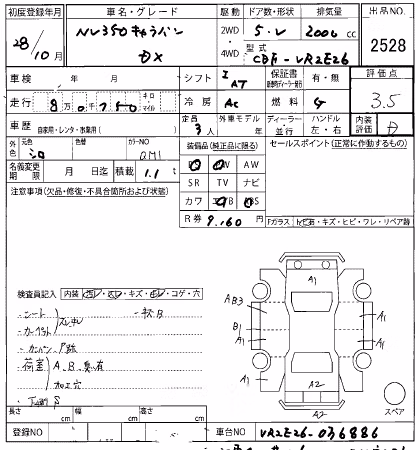 初度登録年月 車名・グレード 駆動 ドア数・形状 排気量 出品NO.
28/10月 NV350キャラバン DX 2WD 4WD 5.V 2000 cc 2528
型式 CBF-VR2E26
車検 年 月 シフト I AT 保証書 有・無 評価点
走行 8万0千750 キロ マイル 冷房 AC 燃料 G 3.5
車歴 自家用・レンタ・事業用( ) 定員 3人 外車モデル 年 ディーラー・並行 ハンドル 左・右 内装評価 D
外色 元色 シロ 色替 カラーNO QM1 装備品(純正品に限る) セールスポイント(正常に作動するもの)
AW
名義変更期限 月 日迄 積載 1.1t SR TV ナビ
注意事項(欠品・修復・不具合箇所および状態) カワ
R券 9,160円 Fガラス トビ石・キズ・ヒビ・ワレ・リペア跡
A1
AB3
A1
B1
A1
A1
A1
A2
A2
スペア
検査員記入 内装 ヨゴレ・スレ・キズ・ ・コゲ・穴
シート
カーペット
荷室 A、B、 有
加工穴
下廻りS
長さ cm 幅 cm 高さ cm
登録NO 車台NO VR2E26-036886